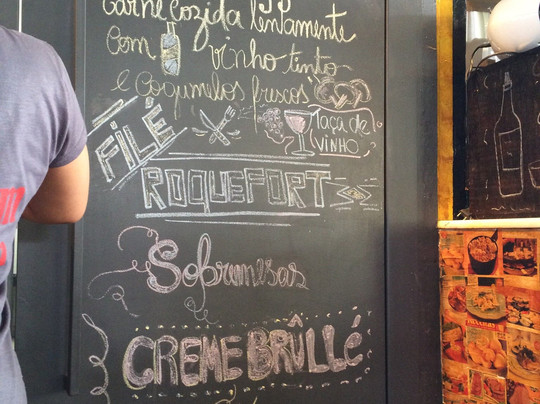 Carne Cozida lentamente
Com vinho tinto
e Cogumelos frescos
FILÉ
Taça de
VINHO
ROQUEFORT
Sobremesas
CREME BRÛLLé